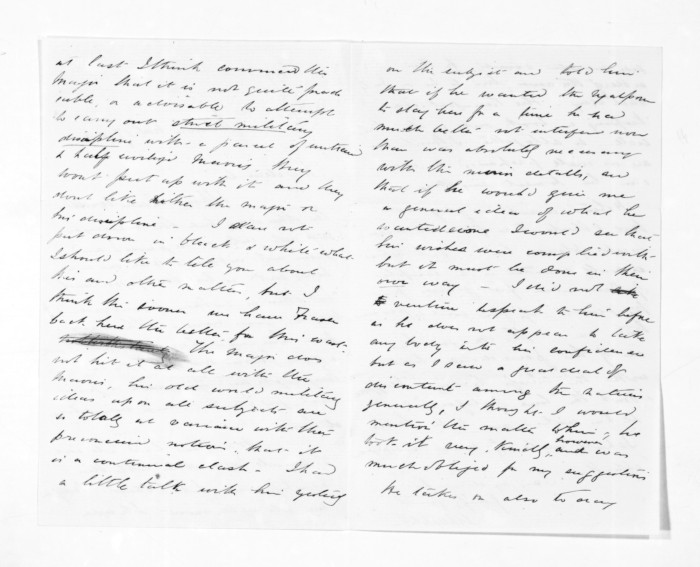 at last I think convinced the
Major that it is not quite practi
cable, or advisable to attempt
to carry out strict military
discipline with a parcel of untrained
& half civilized Maoris. They
wont put up with it and they
dont like either the major or
his discipline - I dare not
put down in black & white what
I should like to tell you about
this and other matters, but I
think the sooner we have Fraser
back here the better for this coast.
The Major does
not hit it at all with the
Maoris, his old world military
ideas upon all subjects are
so totally at variance with their
preconceived notions that it
is a continual clash - I had
a little talk with him yesterday
on the subject and told him
that if he wanted the
to stay here for a time he had
much better not interfere more
than was absolutely necessary
with the minor details, and
that if he would give me
a general idea of what he
wanted done I would see that
his wishes were complied with
but it must be done in their
own way - I did not
venture to speak to him before
as he does not appear to take
any body into his confidence
but as I saw a great deal of
discontent among the natives
generally, I thought I would
mention the matter to him; he
took it very kindly, however and was
much obliged for my suggestions
He takes on also to